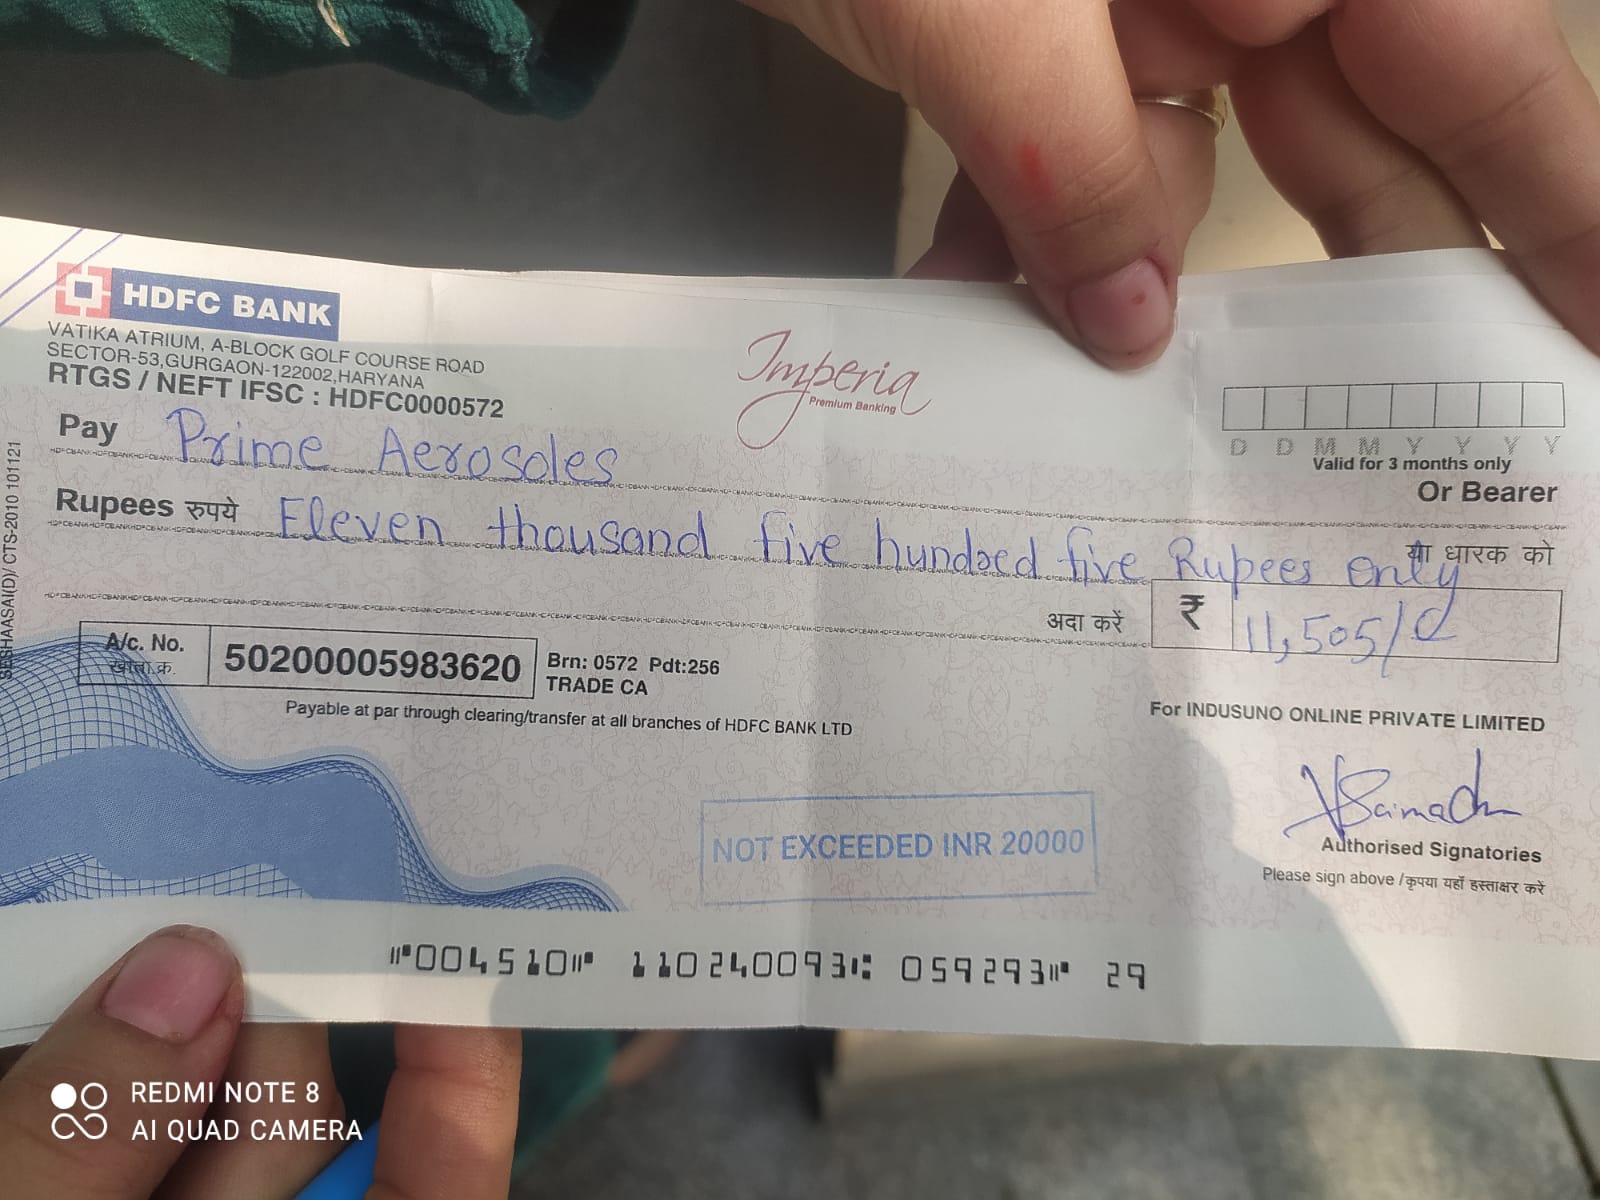 HDFC BANK
VATIKA ATRIUM, A-BLOCK GOLF COURSE ROAD
SECTOR-53,GURGAON-122002,HARYANA
RTGS / NEFT IFSC : HDFC0000572
Imperia
Premium Banking
D D M M Y Y Y Y
Valid for 3 months only
Pay Prime Aerosoles
Or Bearer
या धारक को
Rupees रुपये Eleven thousand five hundred five Rupees only
अदा करें ₹ 11,505/
A/c. No. 50200005983620
खाता.क्र.
Brn: 0572 Pdt:256
TRADE CA
Payable at par through clearing/transfer at all branches of HDFC BANK LTD
For INDUSUNO ONLINE PRIVATE LIMITED
NOT EXCEEDED INR 20000
Authorised Signatories
Please sign above /कृपया यहाँ हस्ताक्षर करें
⑈004510⑈ 110240093⑆ 059293⑈ 29
CTS-2010 101121
REDMI NOTE 8
AI QUAD CAMERA